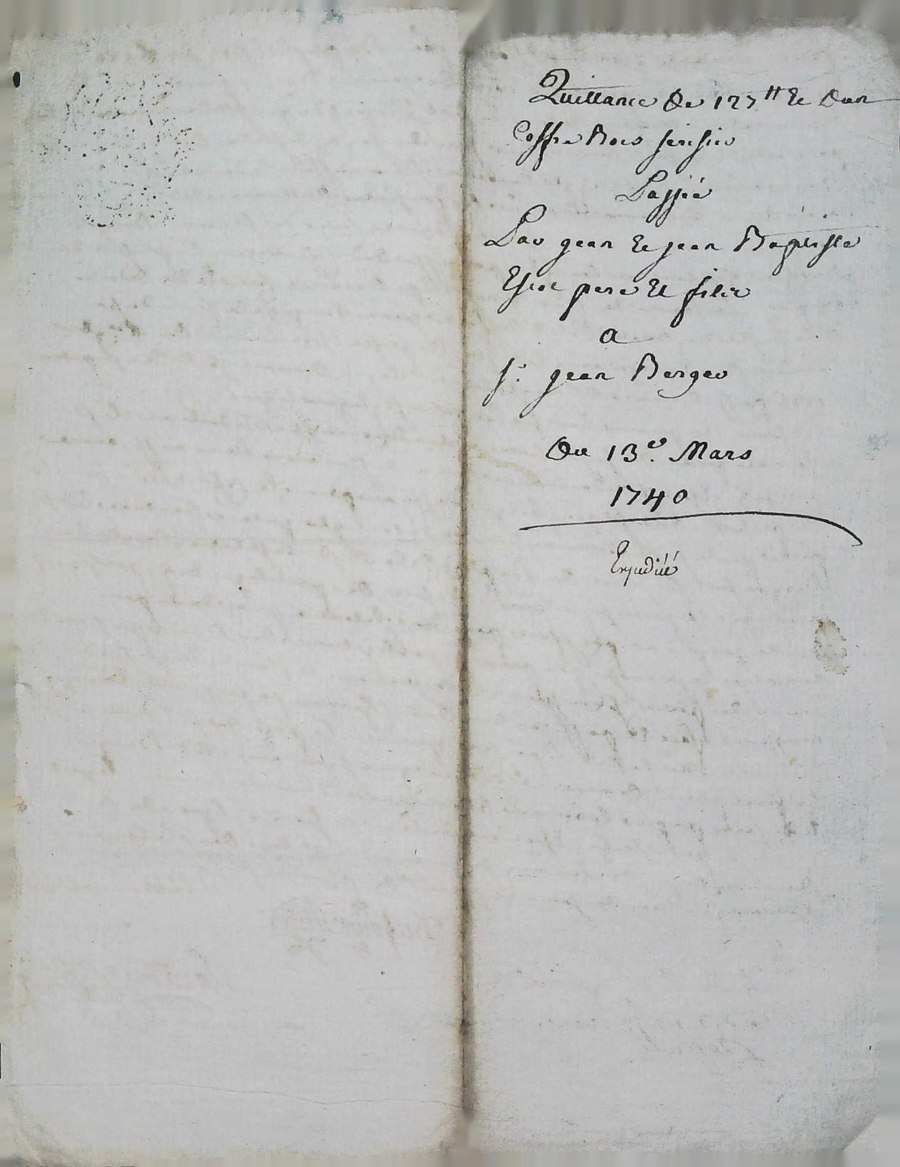 Quittance De 127 ₶ Et Dun
Coffre Bois serisier
Passée
Par jean Et jean Baptiste
pere Et filz
a
sr. jean Berger
Du 13e. Mars
1740
Expediéé